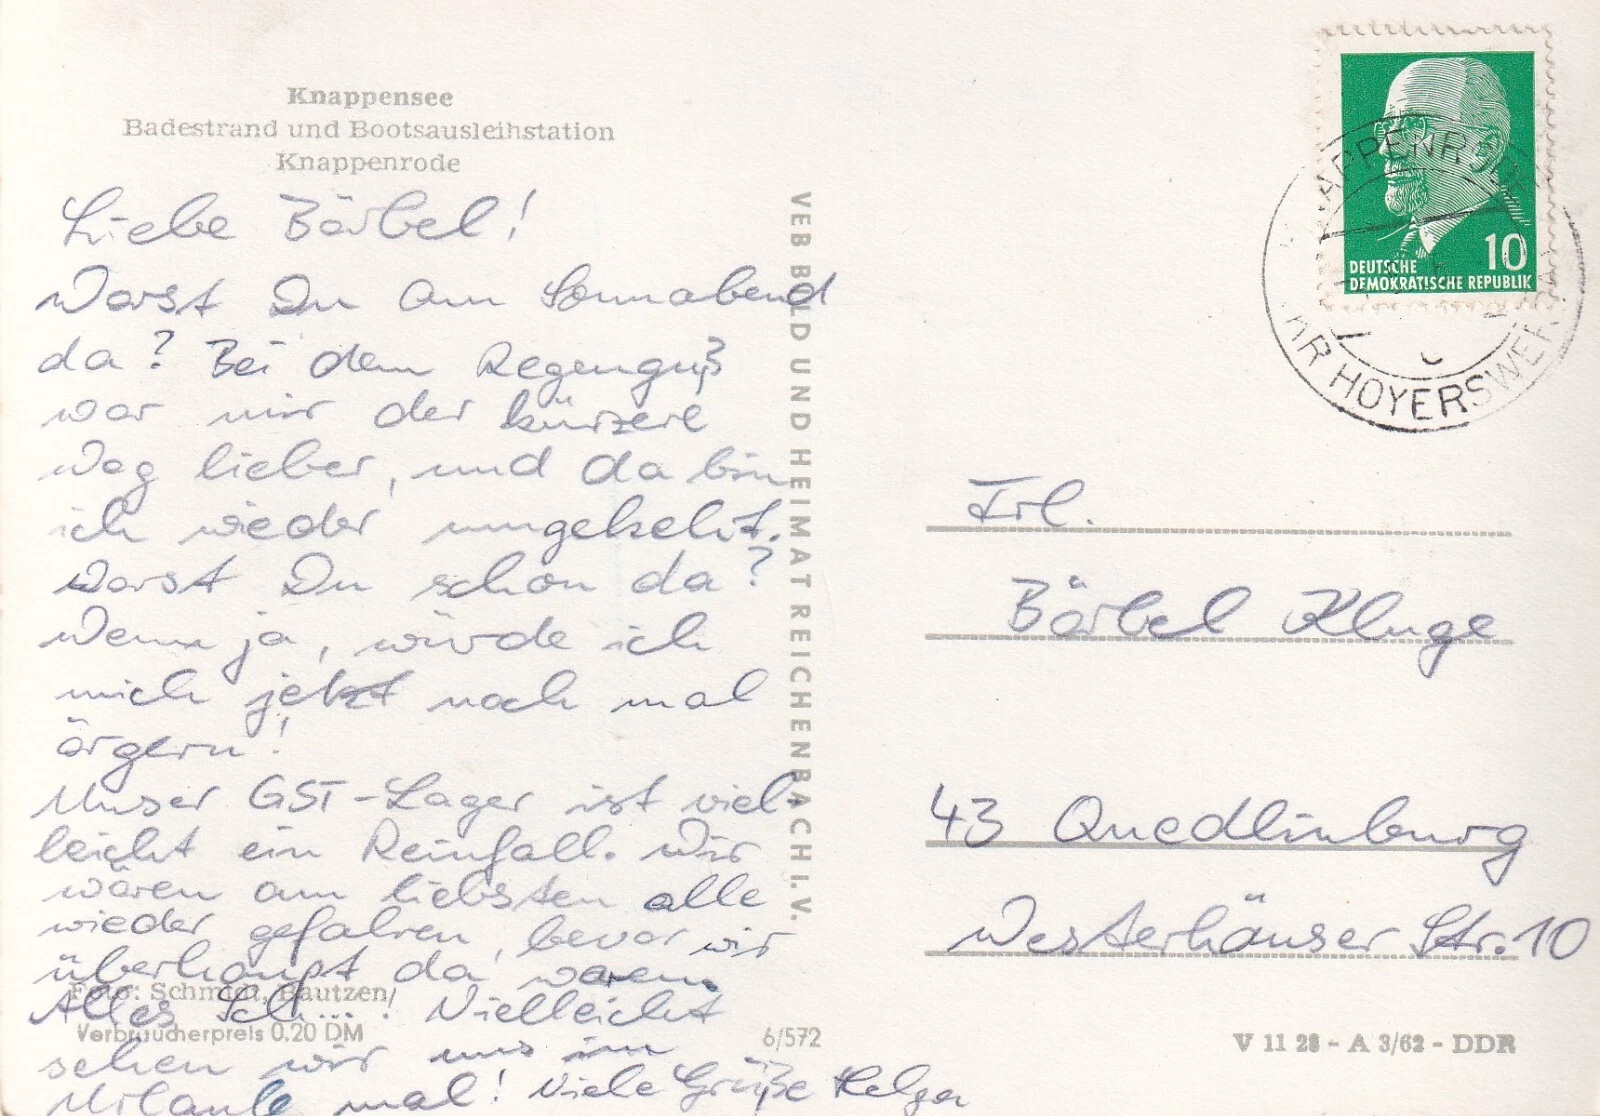 Knappensee
Badestrand und Bootsausleihstation
Knappenrode
Liebe Bärbel!
Warst Du am Sonnabend
da? Bei dem Regenguß
war mir der kürzere
Weg lieber, und da bin
ich wieder umgekehrt.
Warst Du schon da?
Wenn ja, würde ich
mich jetzt noch mal
ärgern!
Unser GST-Lager ist viel-
leicht ein Reinfall. Wir
wären am liebsten alle
wieder gefahren, bevor wir
überhaupt da waren.
Alles Sch...! Vielleicht
sehen wir uns im
Urlaub mal! Viele Grüße Helga
Foto: Schmidt, Bautzen
Verbraucherpreis 0.20 DM
6/572
VEB BILD UND HEIMAT REICHENBACH I. V.
10
DEUTSCHE
DEMOKRATISCHE REPUBLIK
KNAPPENRODE
ÜBER HOYERSWERDA
Frl.
Bärbel Kluge
43 Quedlinburg
Westerhäuser Str. 10
V 11 28 - A 3/62 - DDR